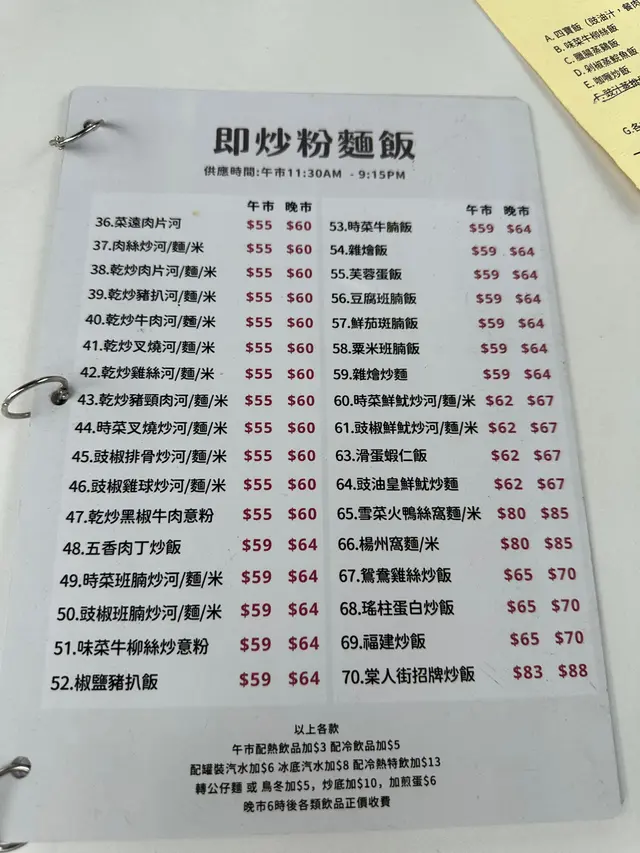 即炒粉麵飯
供應時間:午市11:30AM - 9:15PM
午市 晚市
36.菜遠肉片河 $55 $60
37.肉絲炒河/麵/米 $55 $60
38.乾炒肉片河/麵/米 $55 $60
39.乾炒豬扒河/麵/米 $55 $60
40.乾炒牛肉河/麵/米 $55 $60
41.乾炒叉燒河/麵/米 $55 $60
42.乾炒雞絲河/麵/米 $55 $60
43.乾炒豬頸肉河/麵/米 $55 $60
44.時菜叉燒炒河/麵/米 $55 $60
45.豉椒排骨炒河/麵/米 $55 $60
46.豉椒雞球炒河/麵/米 $55 $60
47.乾炒黑椒牛肉意粉 $55 $60
48.五香肉丁炒飯 $59 $64
49.時菜班腩炒河/麵/米 $59 $64
50.豉椒班腩炒河/麵/米 $59 $64
51.味菜牛柳絲炒意粉 $59 $64
52.椒鹽豬扒飯 $59 $64
午市 晚市
53.時菜牛腩飯 $59 $64
54.雜燴飯 $59 $64
55.芙蓉蛋飯 $59 $64
56.豆腐班腩飯 $59 $64
57.鮮茄斑腩飯 $59 $64
58.粟米班腩飯 $59 $64
59.雜燴炒麵 $59 $64
60.時菜鮮魷炒河/麵/米 $62 $67
61.豉椒鮮魷炒河/麵/米 $62 $67
63.滑蛋蝦仁飯 $62 $67
64.豉油皇鮮魷炒麵 $62 $67
65.雪菜火鴨絲窩麵/米 $80 $85
66.楊州窩麵/米 $80 $85
67.鴛鴦雞絲炒飯 $65 $70
68.瑤柱蛋白炒飯 $65 $70
69.福建炒飯 $65 $70
70.棠人街招牌炒飯 $83 $88
以上各款
午市配熱飲品加$3 配冷飲品加$5
配罐裝汽水加$6 冰底汽水加$8 配冷熱特飲加$13
轉公仔麵 或 烏冬加$5，炒底加$10，加煎蛋$6
晚市6時後各類飲品正價收費
A.四寶飯（豉油汁，餐肉
B.味菜牛柳絲飯
C.臘腸蒸雞飯
D.剁椒蒸鯇魚飯
E.咖喱炒飯
G.各